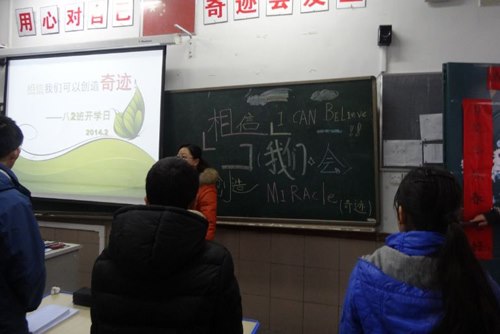 用心对自己
奇迹会发生
相信我们可以创造奇迹
——八2班开学日
2014.2
相信 I CAN Believe !!
我们会
创造 MIRAcle (奇迹)